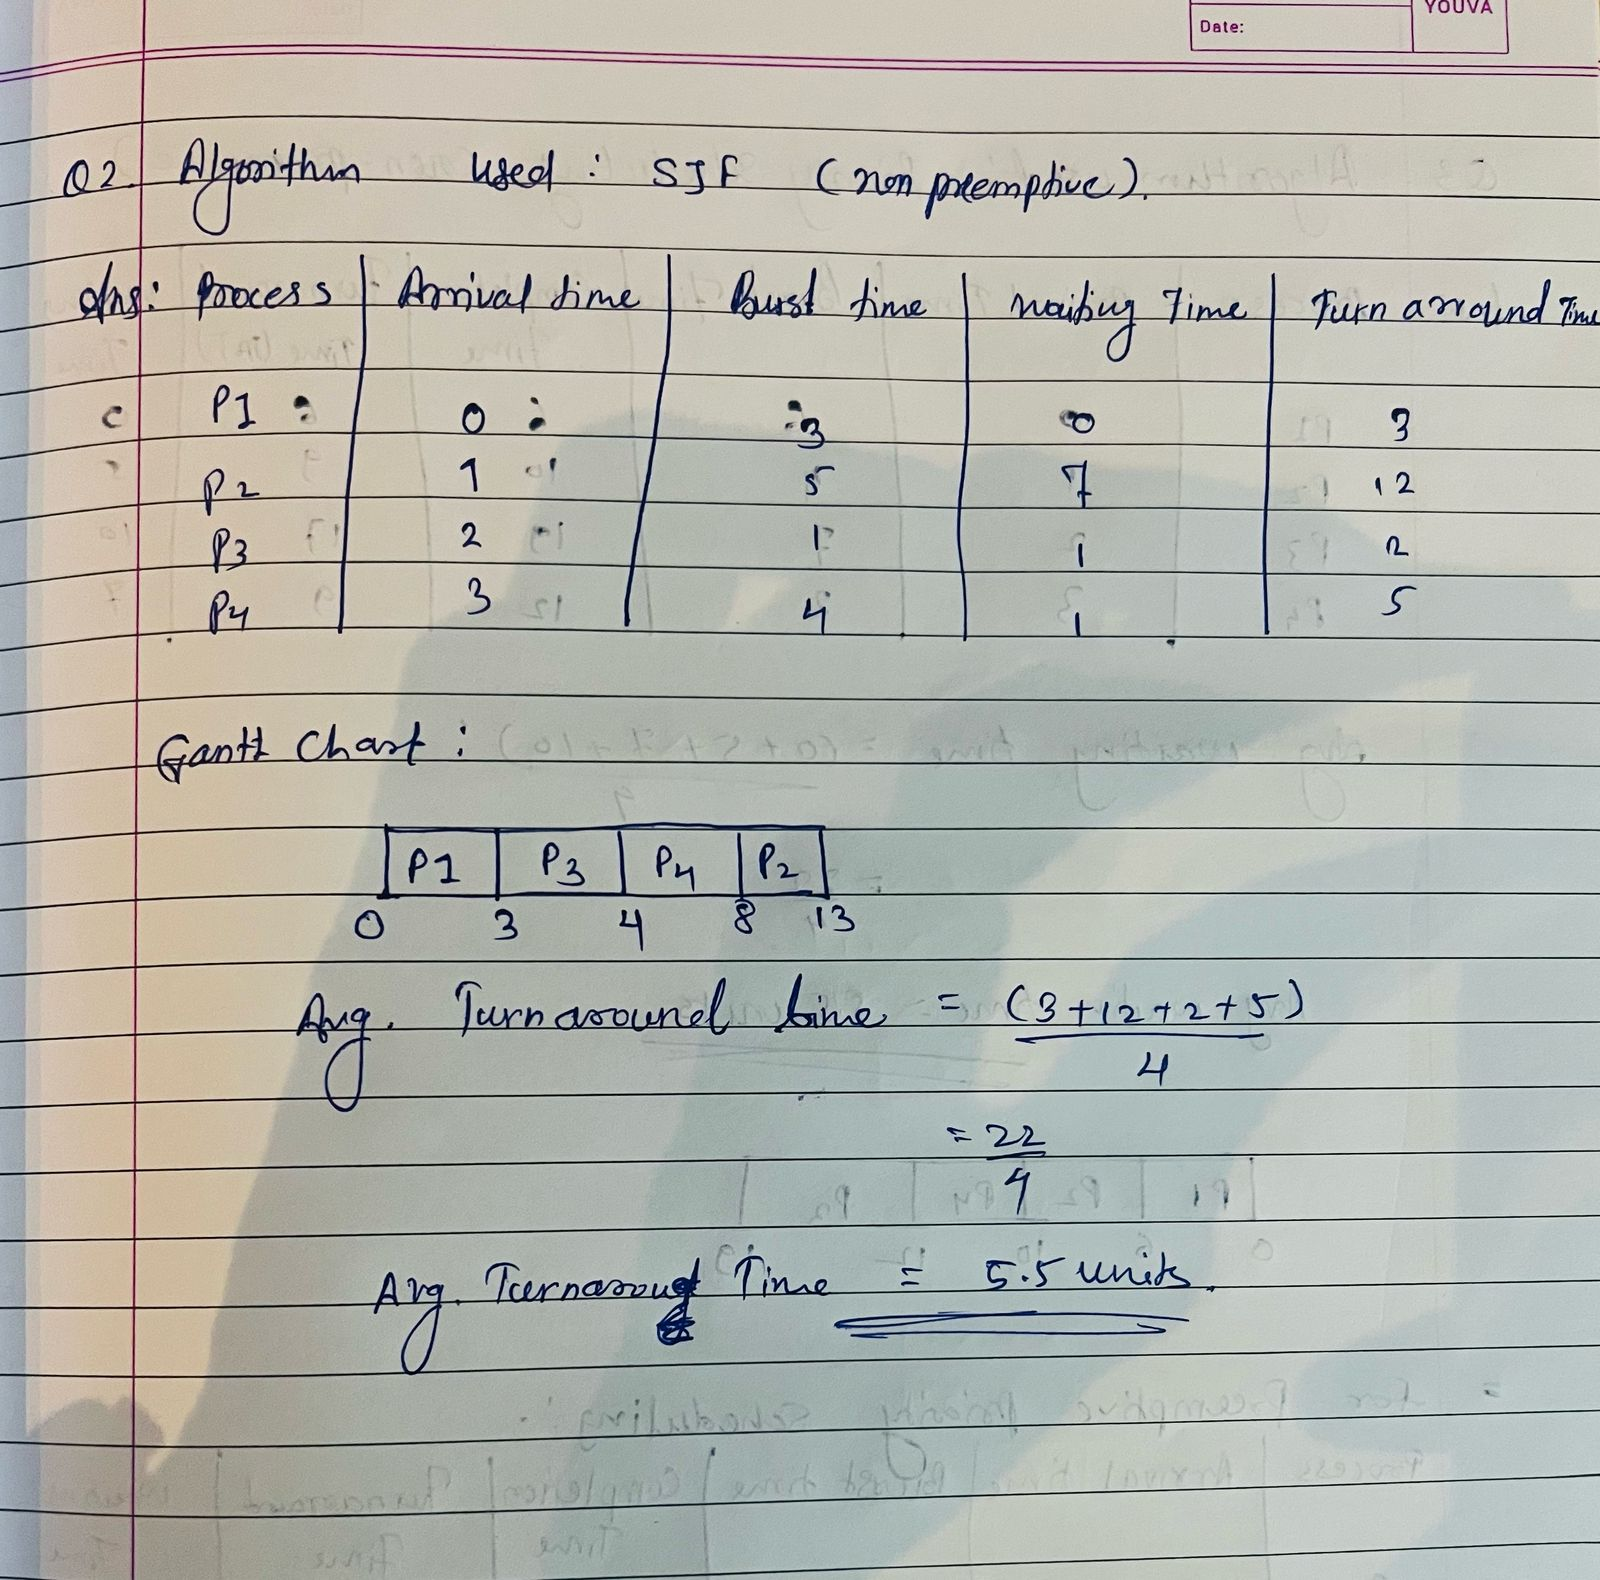 YOUVA
Date:
Q2. Algorithm used : SJF (non preemptive).
Ans: Process Arrival time Burst time Waiting Time Turn arround Time
P1 0 3 0 3
P2 1 5 7 12
P3 2 1 1 2
P4 3 4 1 5
Gantt Chart :
P1 P3 P4 P2
0 3 4 8 13
Avg. Turnaround time = (3+12+2+5)
4
= 22
4
Avg. Turnaroud Time = 5.5 units.